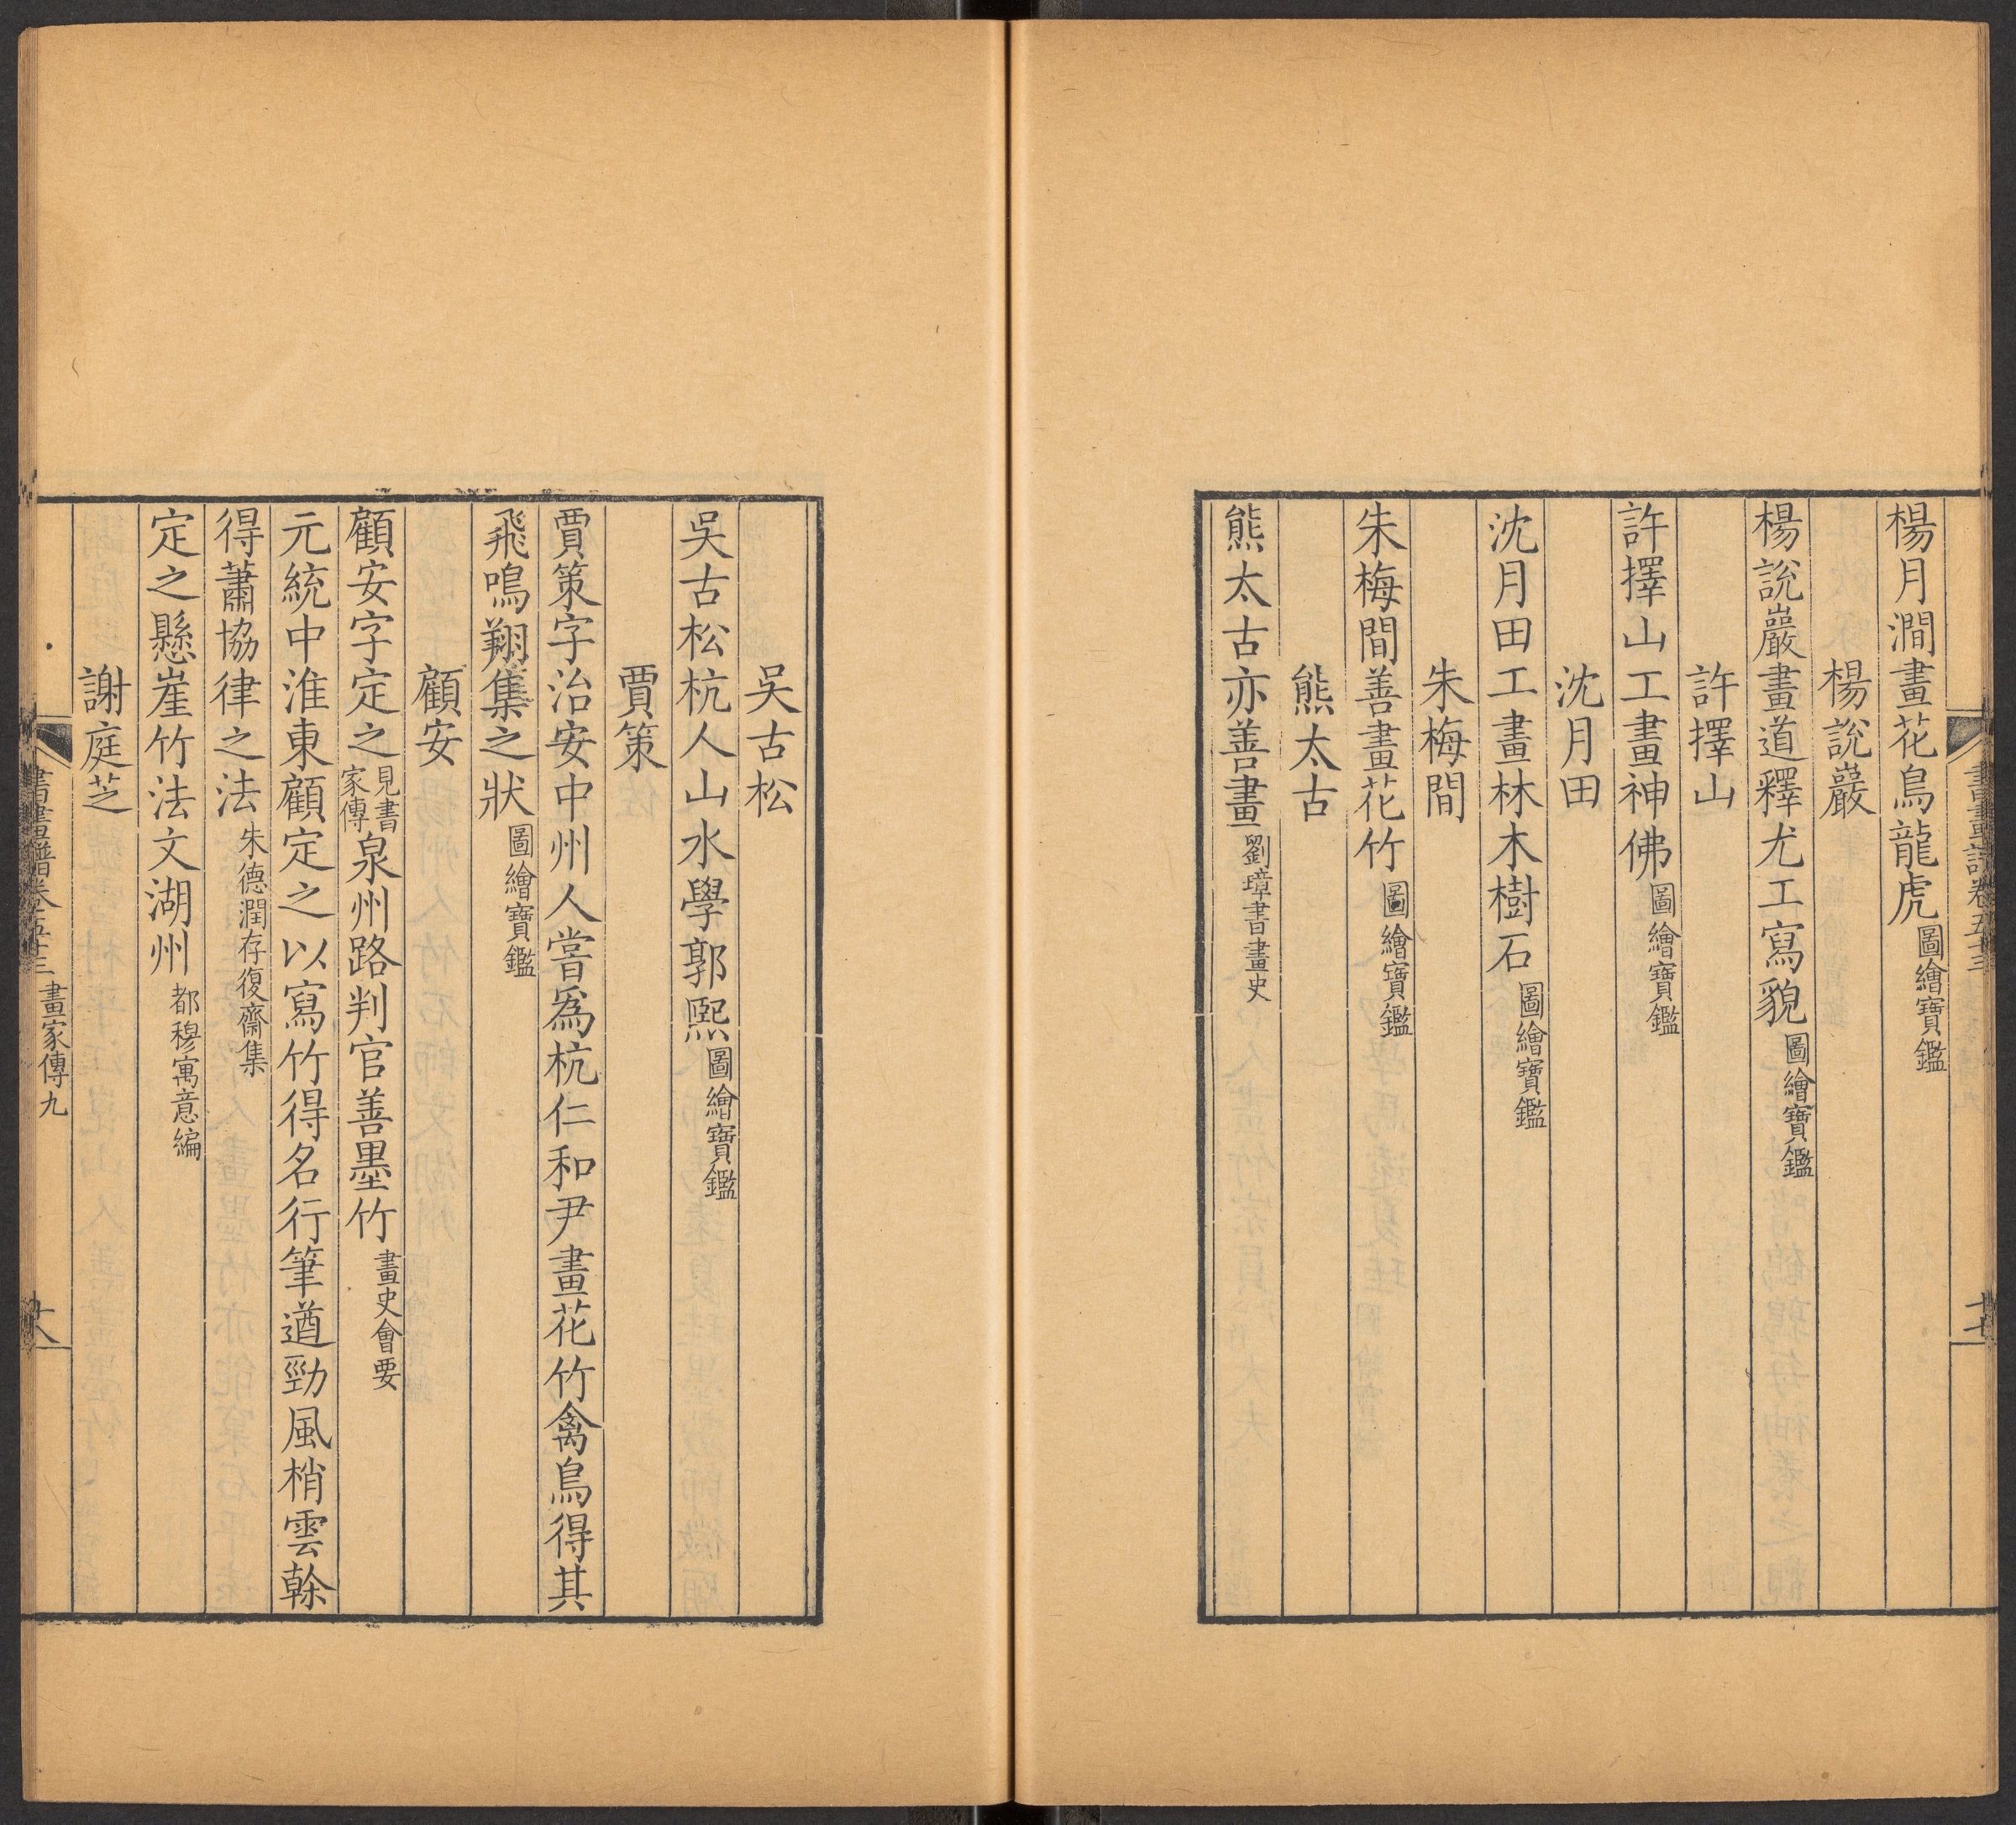 楊月澗畫花鳥龍虎圖繪寶鑑
楊說巖
楊說巖畫道釋尤工寫貌圖繪寶鑑
許擇山
許擇山工畫神佛圖繪寶鑑
沈月田
沈月田工畫林木樹石圖繪寶鑑
朱梅間
朱梅間善畫花竹圖繪寶鑑
熊太古
熊太古亦善畫劉璋書畫史
吳古松
吳古松杭人山水學郭熙圖繪寶鑑
賈策
賈策字治安中州人嘗為杭仁和尹畫花竹禽鳥得其
飛鳴翔集之狀圖繪寶鑑
顧安
顧安字定之見書家傳泉州路判官善墨竹畫史會要
元統中淮東顧定之以寫竹得名行筆遒勁風梢雲榦
得蕭協律之法朱德潤存復齋集
定之懸崖竹法文湖州都穆寓意編
謝庭芝
書畫譜卷五十三 畫家傳九
十八